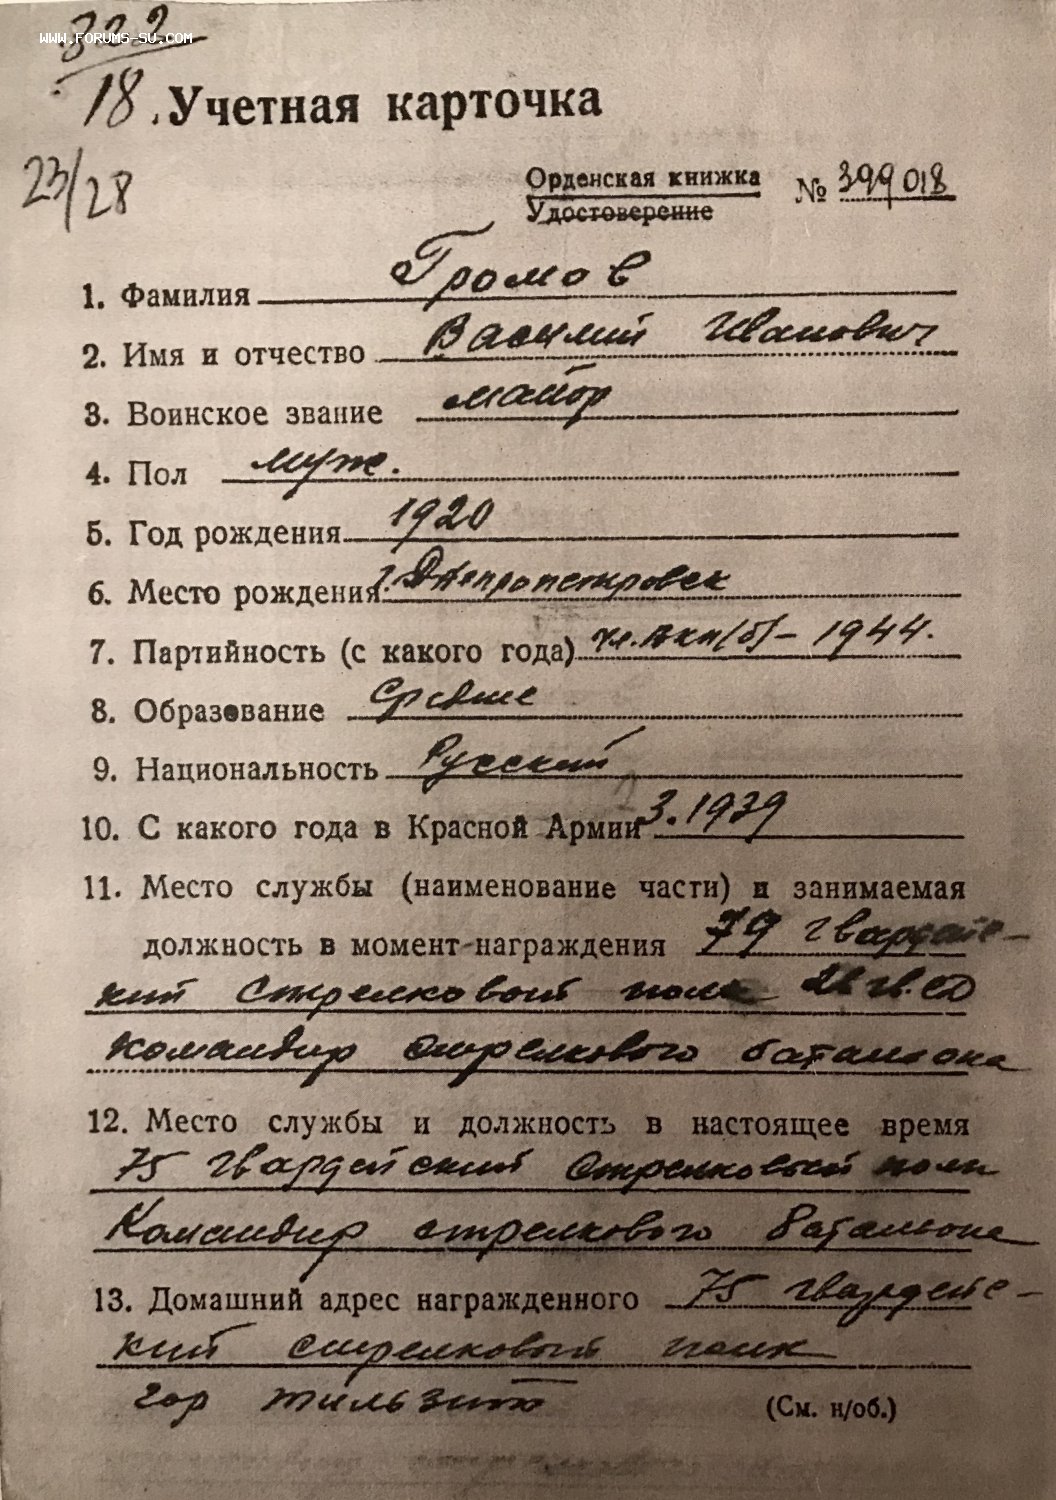 WWW.FORUMS-SU.COM
322
18. Учетная карточка
23/28
Орденская книжка № 399018
Удостоверение
1. Фамилия Громов
2. Имя и отчество Василий Иванович
3. Воинское звание майор
4. Пол муж.
5. Год рождения 1920
6. Место рождения г. Днепропетровск
7. Партийность (с какого года) чл. вкп(б) – 1944.
8. Образование Средне
9. Национальность Русский
10. С какого года в Красной Армии 3.1939
11. Место службы (наименование части) и занимаемая
должность в момент награждения 79 гвардейс-
кий Стрелковый полк гв. СД
Командир стрелкового батальона
12. Место службы и должность в настоящее время
75 гвардейский Стрелковый полк
Командир стрелкового батальона
13. Домашний адрес награжденного 75 гвардейс-
кий стрелковый полк
гор Тильзит (См. н/об.)